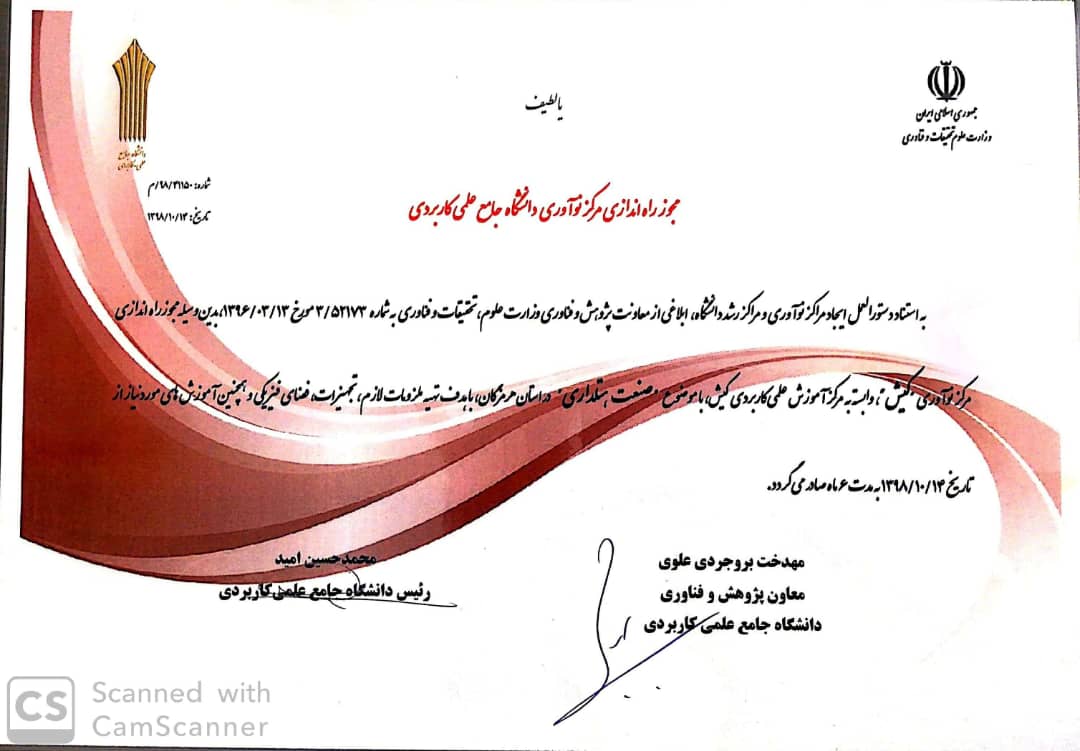 یا لطیف
جمهوری اسلامی ایران
وزارت علوم تحقیقات و فناوری
دانشگاه جامع
علمی کاربردی
شماره: ۹۸/۳۱۱۵۰/م
تاریخ: ۱۳۹۸/۱۰/۱۴
مجوز راه اندازی مرکز نوآوری دانشگاه جامع علمی کاربردی
به استناد دستورالعمل ایجاد مراکز نوآوری و مراکز رشد دانشگاه، ابلاغی از معاونت پژوهش و فناوری وزارت علوم، تحقیقات و فناوری به شماره ۳/۵۲۱۷۳ مورخ ۱۳۹۶/۰۳/۱۳، بدین وسیله مجوز راه اندازی
مرکز نوآوری "کیش"، وابسته به مرکز آموزش علمی کاربردی کیش، با موضوع "صنعت هتلداری" در استان هرمزگان، با هدف تهیه ملزومات لازم، تجهیزات، فضای فیزیکی و همچنین آموزش های مورد نیاز از
تاریخ ۱۳۹۸/۱۰/۱۴ به مدت ۶ ماه صادر می گردد.
مهدخت بروجردی علوی
معاون پژوهش و فناوری
دانشگاه جامع علمی کاربردی
محمدحسین امید
رئیس دانشگاه جامع علمی کاربردی
CS Scanned with
CamScanner